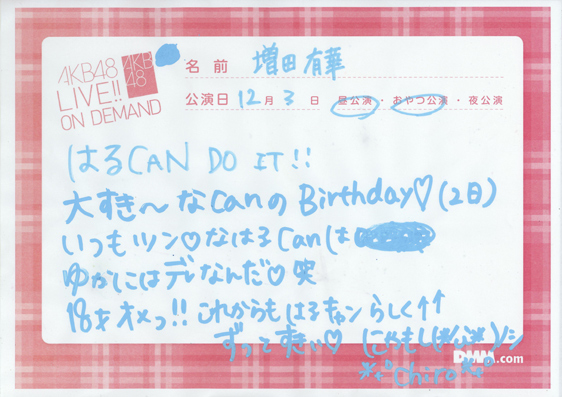 AKB48
LIVE!!
ON DEMAND
AKB
48
名前 増田有華
公演日 12月3日 昼公演・おやつ公演・夜公演
はるCAN DO IT!!
大すき〜なCanの Birthday♡(2日)
いつもツン♡なはるCanは
ゆかにはデレなんだ♡笑
18才オメっ!! これからもはるきゃんらしく↑↑
ずっとすきぃ♡
DMM.com
*+°chiro*+°